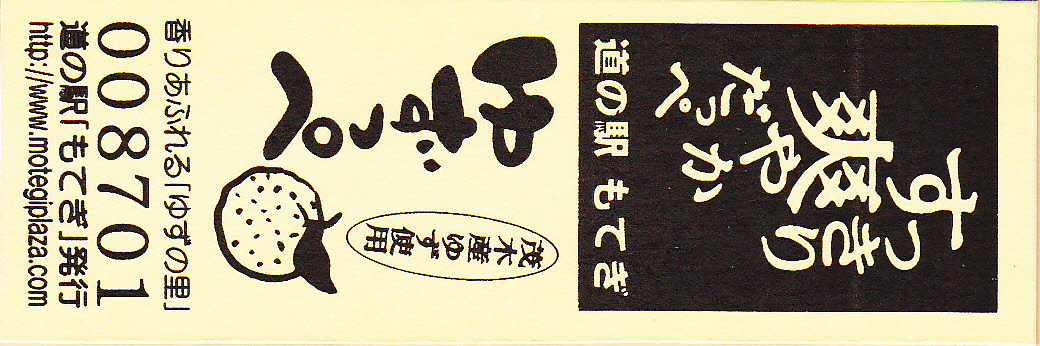 すっきり
爽やか
だっぺ
道の駅 もてぎ
ゆずっぺ
茂木産ゆず使用
香りあふれる「ゆずの里」
008701
道の駅「もてぎ」発行
http://www.motegiplaza.com